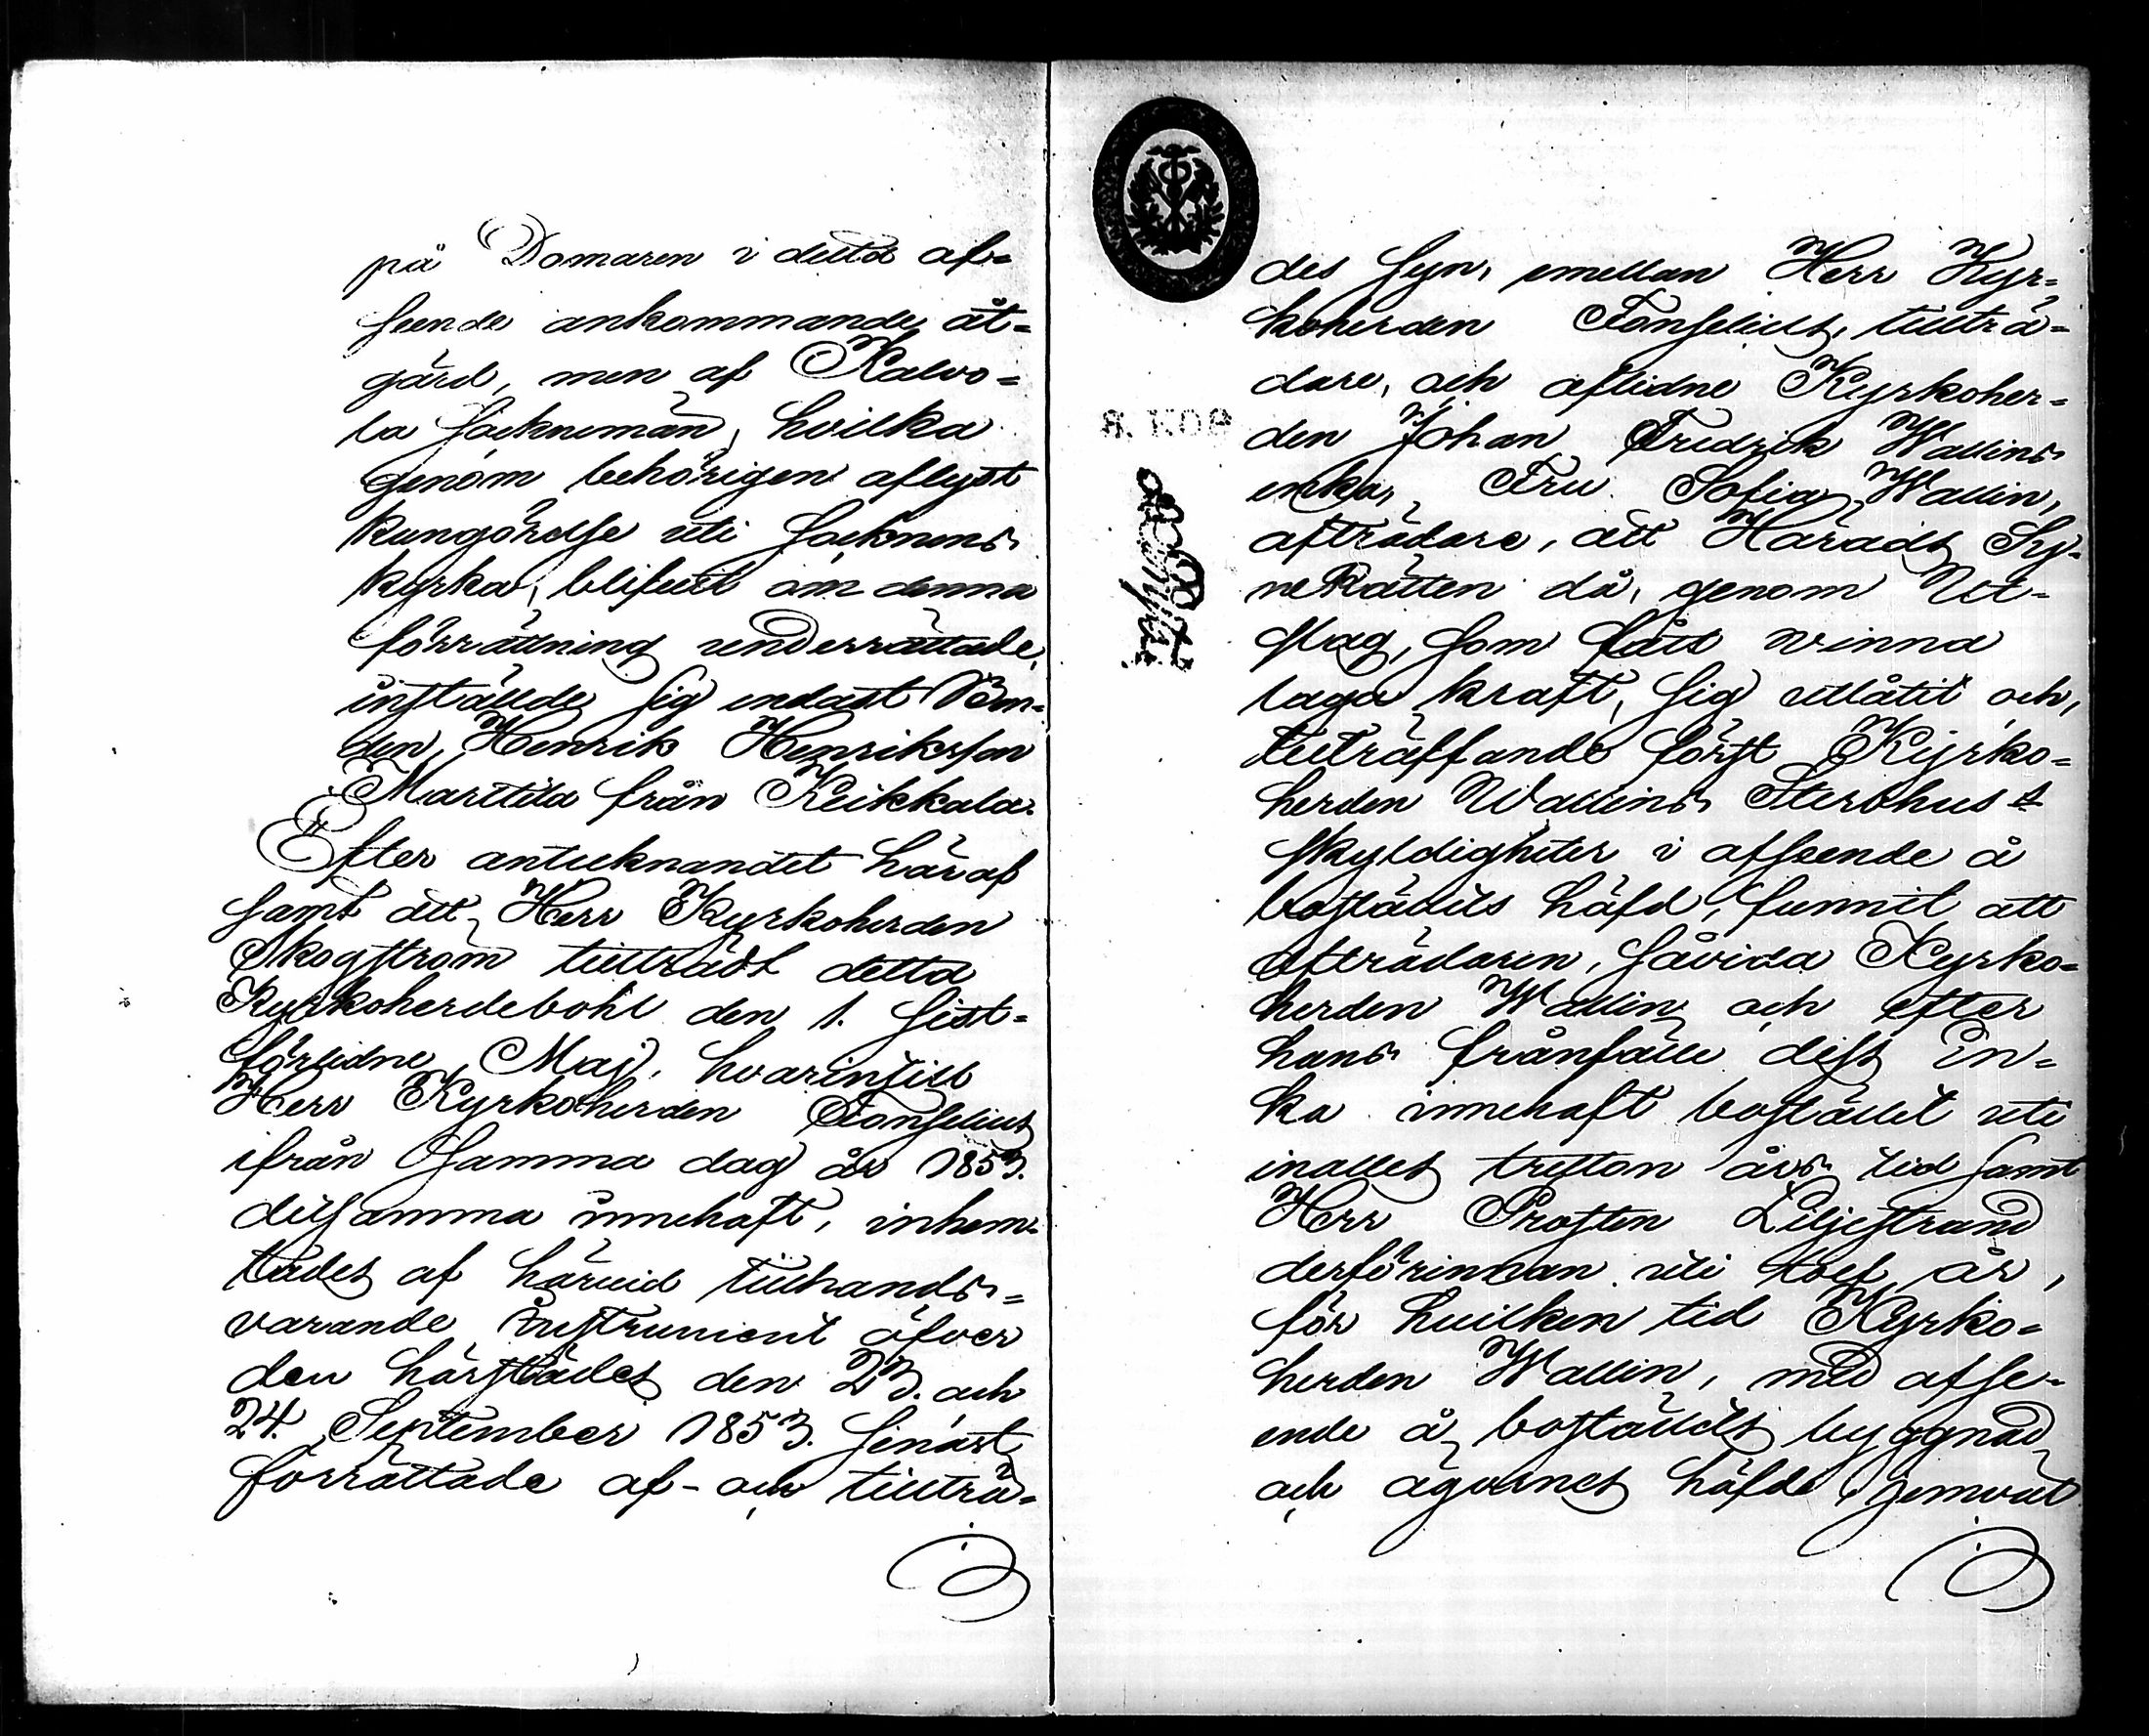 på Domaren i detta af=
seende ankommande åt=
gärd, men af Kalvo=
la sockneman, hvilka
genom behörigen aflyst
kungörelse uti Socknens
kyrka, blifvit om denna
förrättning underrättade,
inställde sig endast Bon=
den, Henrik Henriksson
Marttila från Keikkala.
Efter antecknandet häraf
samt att Herr Kyrkoherden
Skogström tillträdt detta
Kyrkoherdeboht den 1. sist=
förlidne Maj, hvarintill
Herr Kyrkoherden Fonselius
ifrån samma dag år 1853.
detsamma innehaft, inhem=
tades af härvid tillhands=
varande Instrument öfver
den härstädes den 23. och
24. September 1853. senast
förrättade af- och tillträ=
des Syn, emellan Herr Kyr=
koherden Fonselius, tillträ=
dare, och aflidne Kyrkoher=
den Johan Fredrik Wallins
enka, Fru Sofia Wallin,
afträdare, att Härads Sy=
neRätten då, genom Ut=
slag, som fått vinna
laga kraft, sig utlåtit och,
vidträffande först Kyrko=
herden Wallins Sterbhus
skyldigheter i afseende å
boställets häfd, funnit att
Afträdaren, såvida Kyrko=
herden Wallin och efter
hans frånfälle dess En=
ka innehaft bostället uti
inalles tretton års tid samt
Herr Prosten Liljestrand
derförinnan uti tolf år,
för hvilken tid Kyrko=
herden Wallin, med afse=
ende å boställets byggnad
och ägornes häfde, gemväl
8. KOP